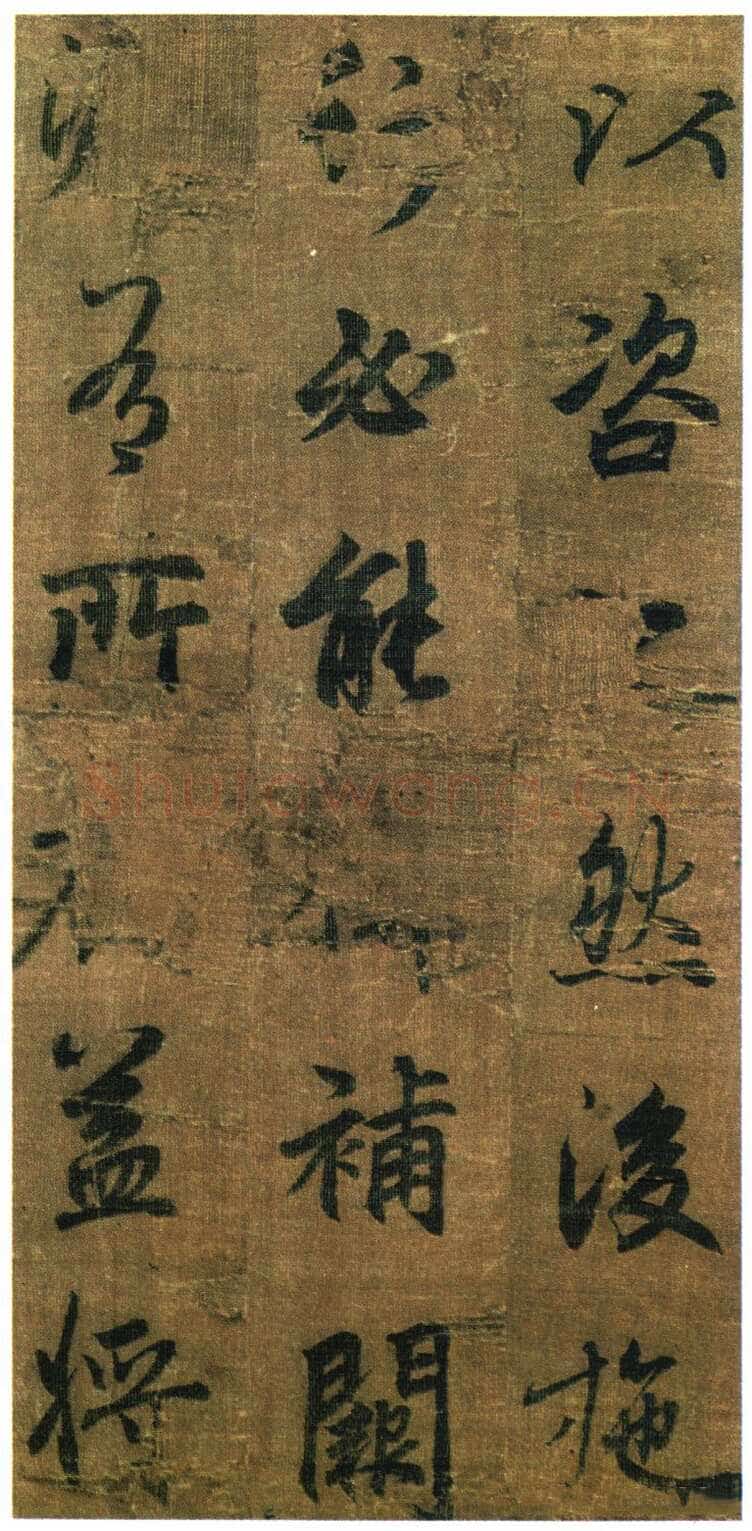 以咨然後施
行必能補闕
有所益將
Shufawang.CN